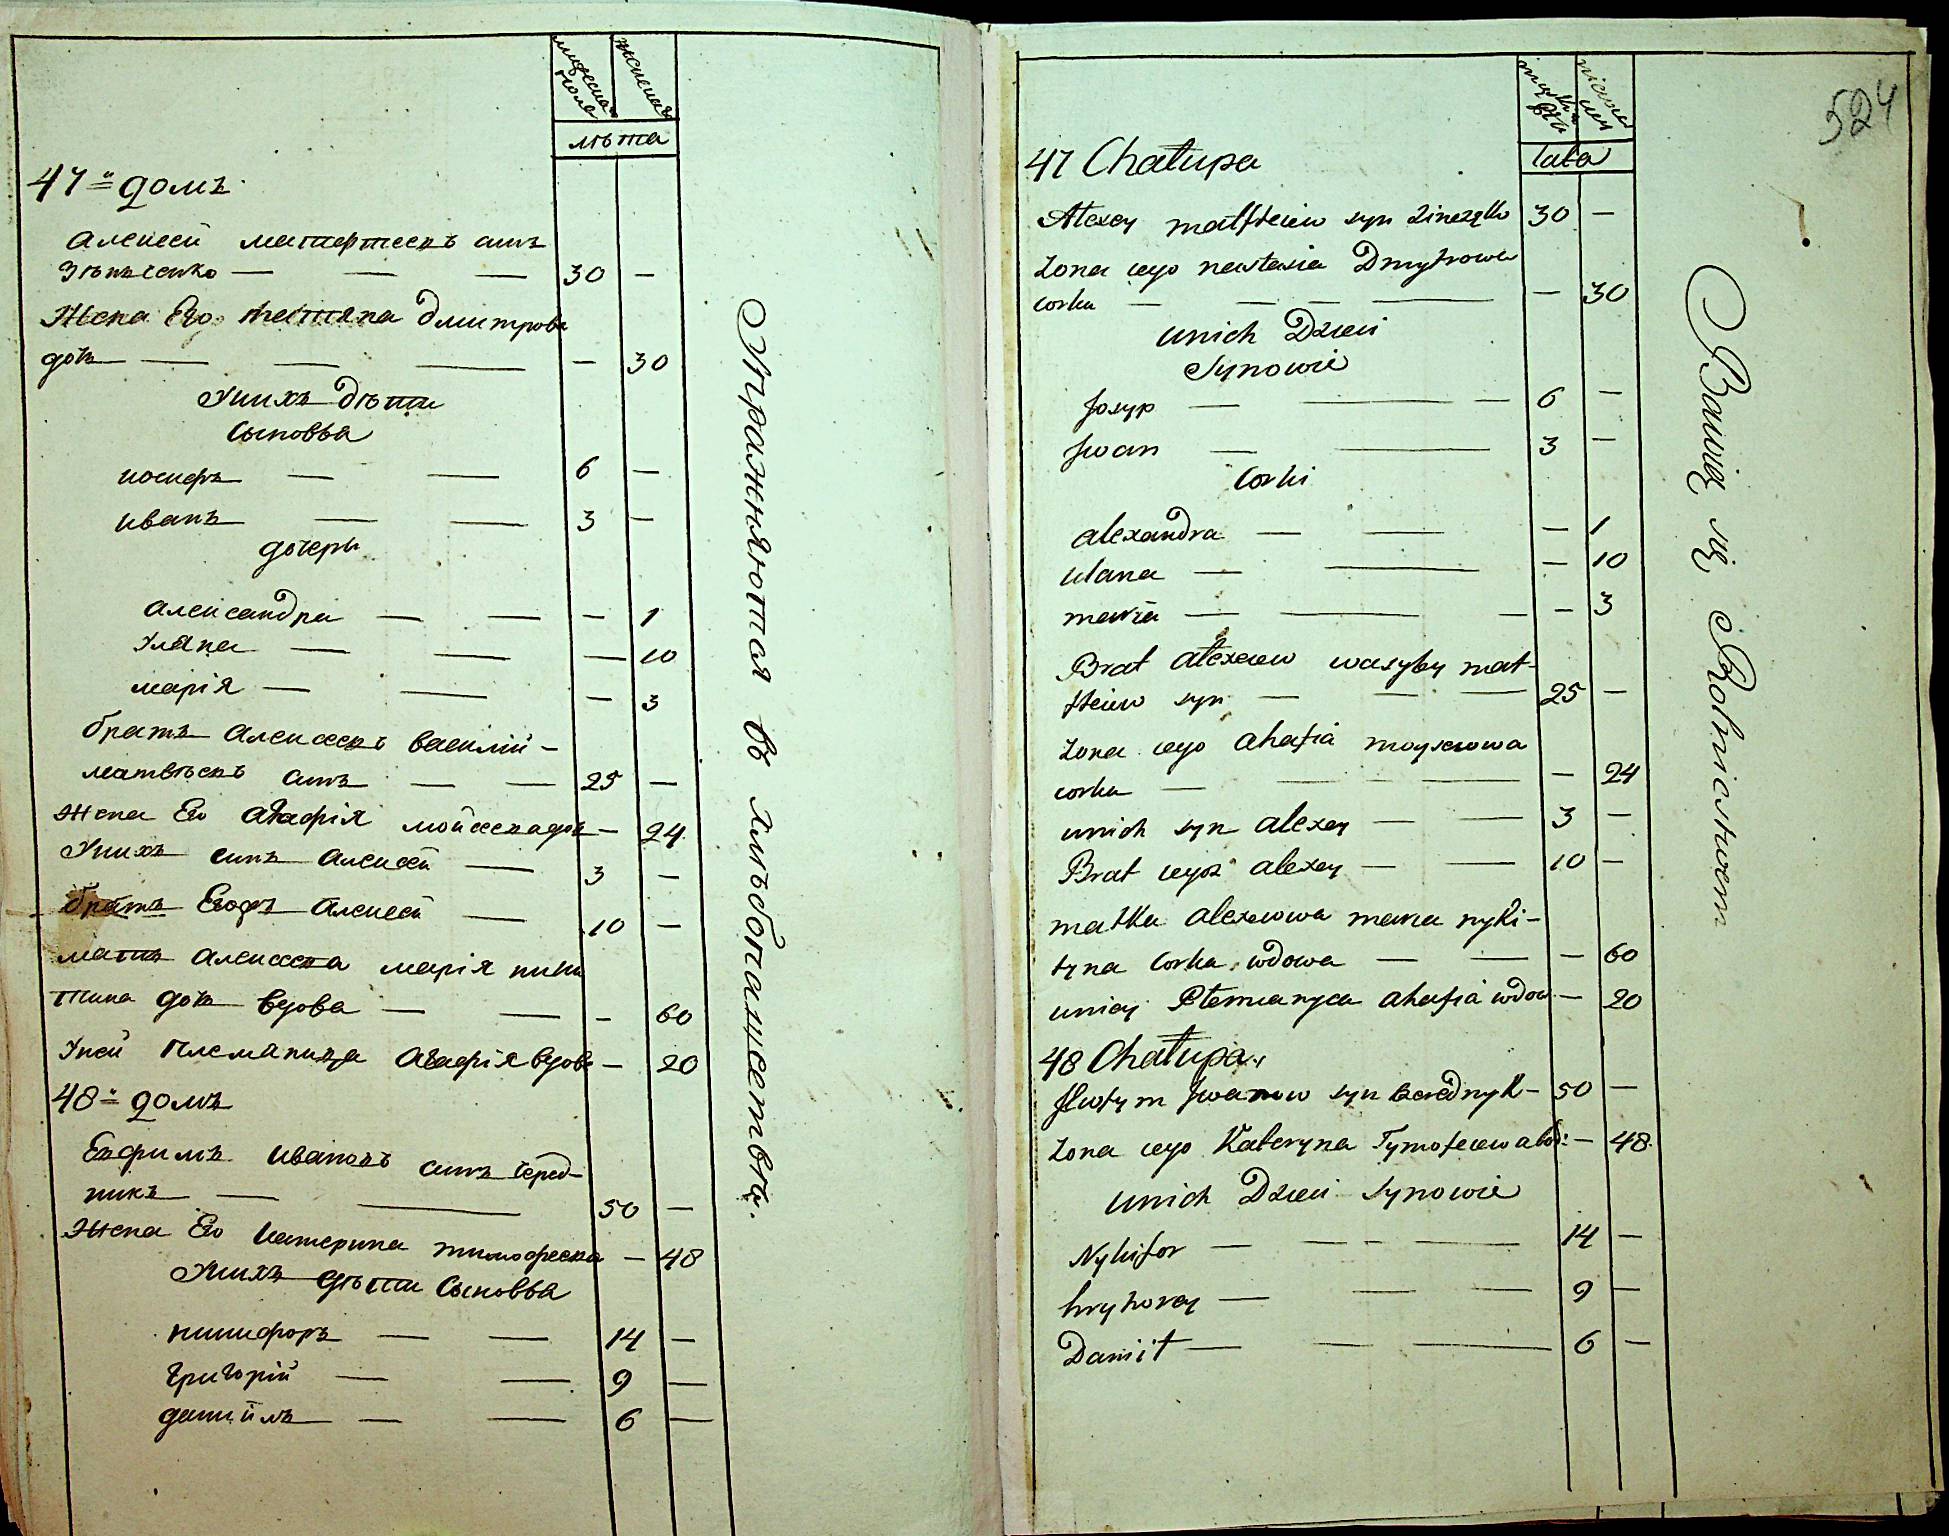 мужеска пола
женска
лѣта
47й домъ
Алексей матфтеевъ сынъ
Зѣнченко — — — 30 —
Жена Его Дмитрова
дочь — — — — 30
У нихъ дѣти
Сыновья
иосифъ — — 6 —
иванъ — — 3 —
дочери
Александра — — — 1
Уляна — — — 10
марія — — — 3
братъ алексеевъ василій
матвѣевъ сынъ — — 25 —
Жена Ево Агафія мойсеевадочь — 24
У нихъ синъ алексей — 3 —
братъ Егожъ алексей — 10 —
мать алексеева марія ники
тина дочь вдова — — — 60
У ней племяница Агафія вдова — 20
48й домъ
Евфимъ ивановъ сынъ черед-
никъ — — 50 —
Жена Ево катерина тимофеева — 48
У нихъ дѣти Сыновья
никифоръ — — 14 —
григорій — — 9 —
даниилъ — — 6 —
Упражняются въ хлѣбопашественъ.
524
lata
47 Chałupa
Alexey matfteiew syn Zineczko 30 —
Zona ieyo nastasia Dmytrowa
corka — — — — — 30
u nich Dzieci
Synowie
Josyp — — — 6 —
Jwan — — 3 —
Corki
alexandra — — — 1
ulana — — — 10
maria — — — — 3
Brat alexeiew wasyley mat-
fteiew syn — — — 25 —
Zona ieyo ahafia moyseiowa
corka — — — — — 24
u nich syn alexey — — 3 —
Brat ieyoż alexey — — 10 —
matka alexeiowa maria nyki-
tyna Corka wdowa — — — 60
u niey Plemianyca ahafia wdow — 20
48 Chałupa
Jwan syn Czerednyk — 50 —
Zona ieyo Kateryna Tymofeiewa — 48
u nich Dzieci Synowie
Nykifor — — — 14 —
hryhorey — — — 9 —
Danił — — — 6 —
Bawią się Rolnictwem